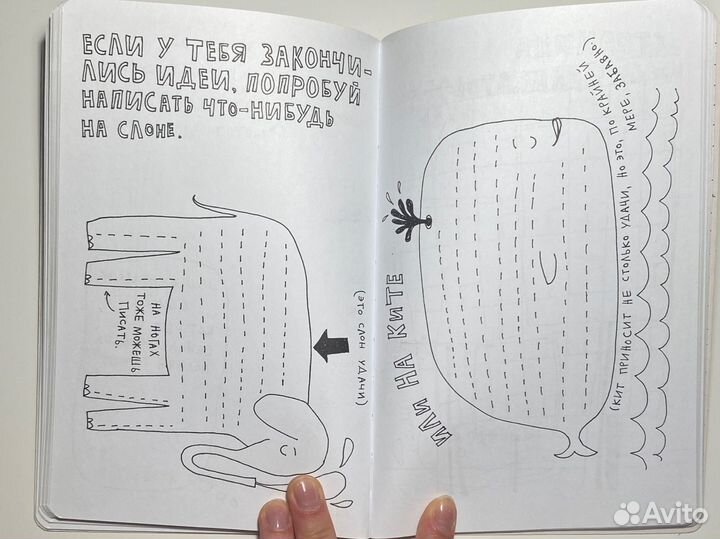 ЕСЛИ У ТЕБЯ ЗАКОНЧИ-
ЛИСЬ ИДЕИ, ПОПРОБУЙ
НАПИСАТЬ ЧТО-НИБУДЬ
НА СЛОНЕ.
НА НОГАХ
ТОЖЕ МОЖЕШЬ
ПИСАТЬ.
(ЭТО СЛОН УДАЧИ)
ИЛИ НА КИТЕ
(КИТ ПРИНОСИТ НЕ СТОЛЬКО УДАЧИ, НО ЭТО, ПО КРАЙНЕЙ
МЕРЕ, ЗАБАВНО.)
Avito